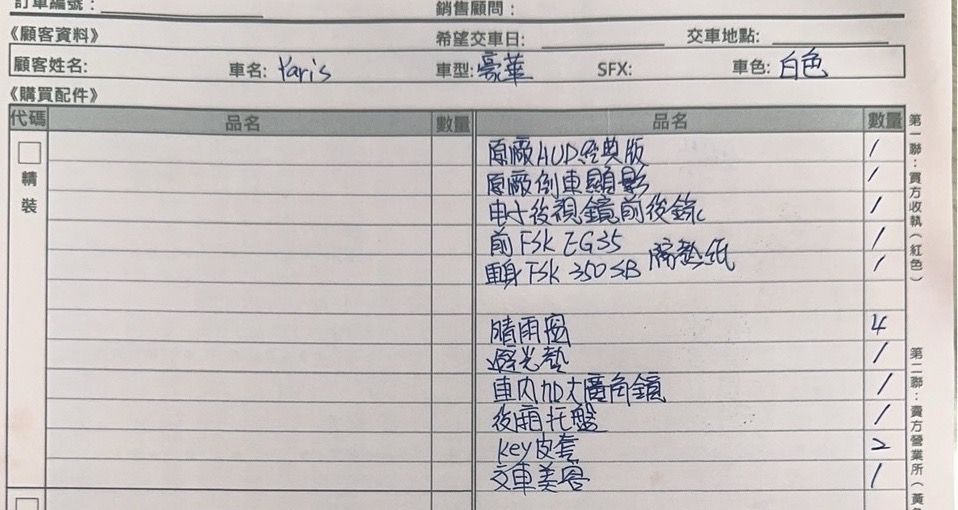 訂車編號： 銷售顧問：
《顧客資料》 希望交車日: 交車地點:
顧客姓名: 車名: Yaris 車型: 豪華 SFX: 車色: 白色
《購買配件》
代碼 品名 數量 品名 數量
精裝
原廠AUD經典版 1
原廠倒車顯影 1
电子後視鏡前後錄 1
前 FSK EG35 1
車身 FSK 350SB 隔熱紙 1
晴雨窗 4
避光墊 1
車內加大廣角鏡 1
後廂托盤 1
key皮套 2
交車美容 1
第一聯：買方收執（紅色）
第二聯：賣方營業所（黃